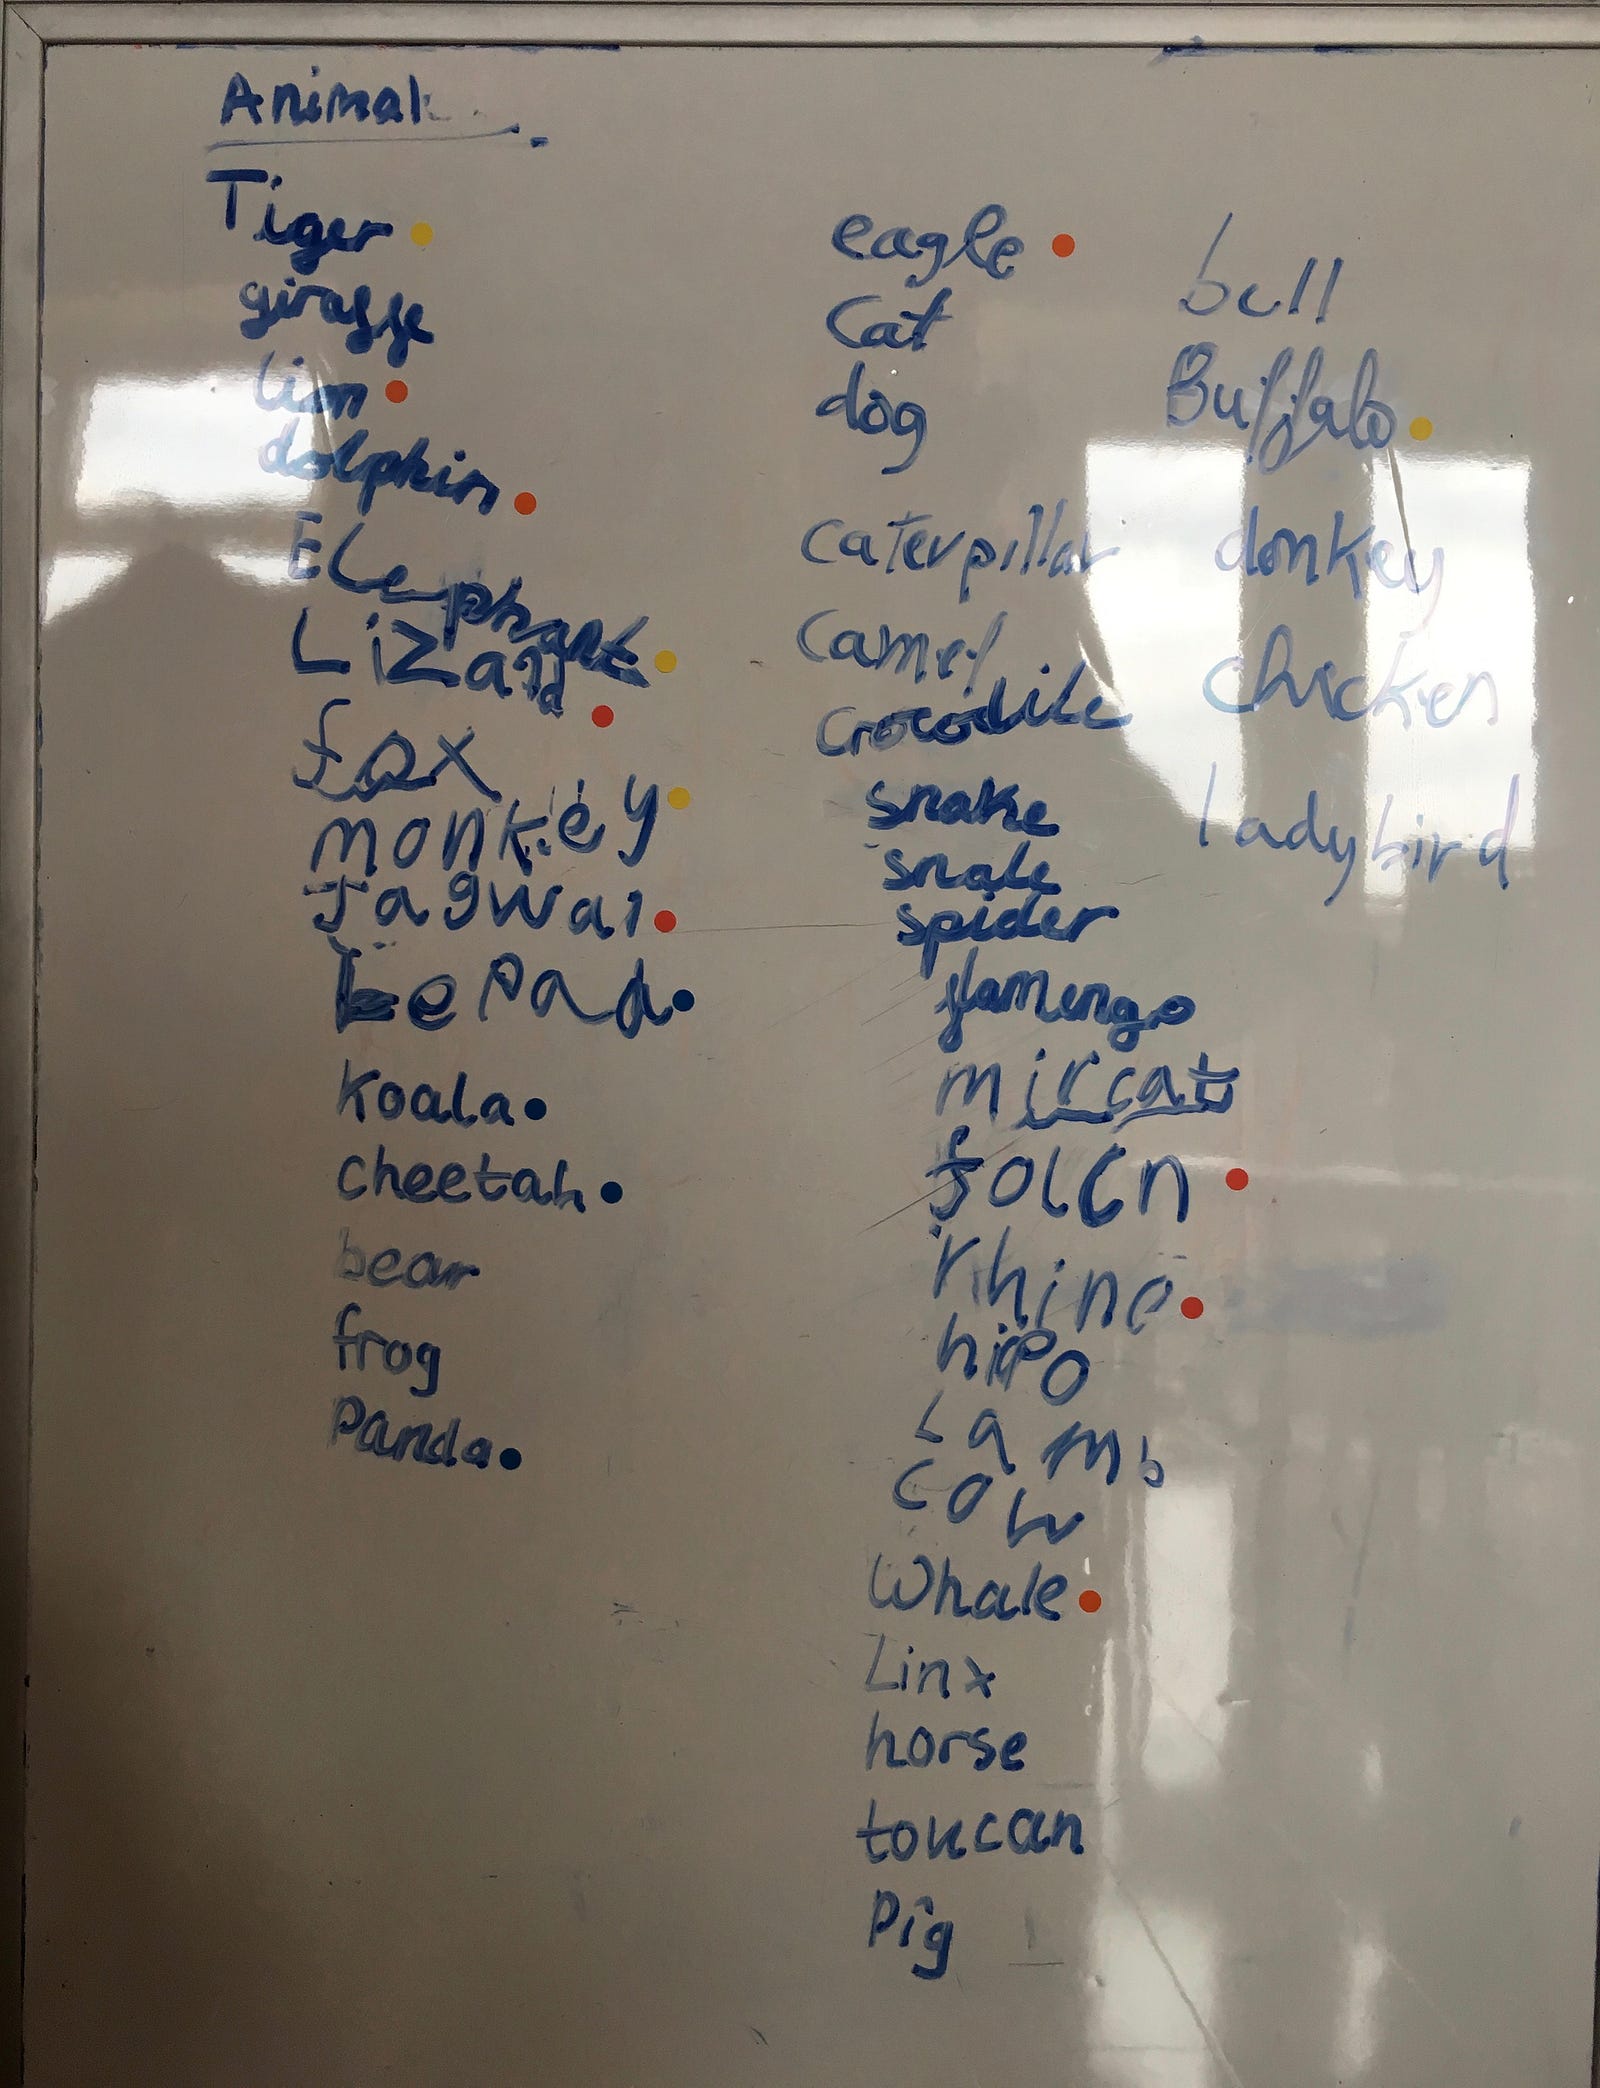 Animal
Tiger
giraffe
lion
dolphin
ELephant
Lizard
fox
monkey
Jagwar
Lepad
Koala
cheetah
bear
frog
Panda
eagle
Cat
dog
Caterpillar
Camel
Crocodile
snake
snale
spider
flamengo
mircat
folcn
rhino
hipo
Lamb
cow
Whale
Linx
horse
toucan
Pig
bull
Buffalo
donkey
chicken
ladybird